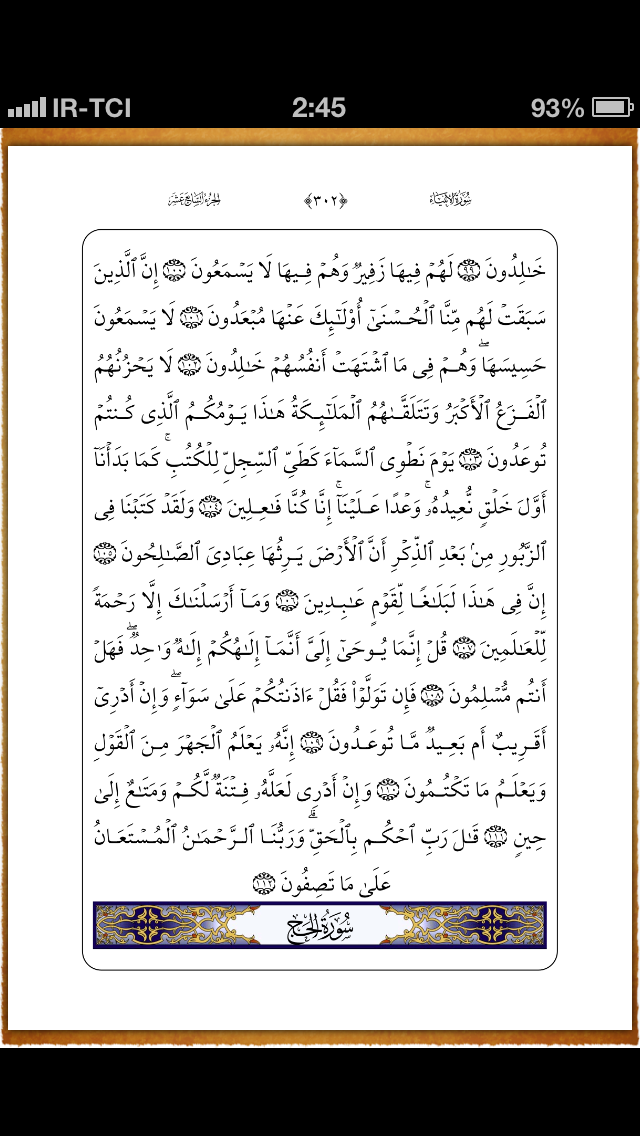 IR-TCI 2:45 93%
سُورَةُ الأَنبِيَاء ﴿٣٠٢﴾ الجُزءُ السَّابِعَ عَشَرَ
خَٰلِدُونَ ٩٩ لَهُمۡ فِيهَا زَفِيرٞ وَهُمۡ فِيهَا لَا يَسۡمَعُونَ ١٠٠ إِنَّ ٱلَّذِينَ
سَبَقَتۡ لَهُم مِّنَّا ٱلۡحُسۡنَىٰٓ أُوْلَٰٓئِكَ عَنۡهَا مُبۡعَدُونَ ١٠١ لَا يَسۡمَعُونَ
حَسِيسَهَاۖ وَهُمۡ فِي مَا ٱشۡتَهَتۡ أَنفُسُهُمۡ خَٰلِدُونَ ١٠٢ لَا يَحۡزُنُهُمُ
ٱلۡفَزَعُ ٱلۡأَكۡبَرُ وَتَتَلَقَّىٰهُمُ ٱلۡمَلَٰٓئِكَةُ هَٰذَا يَوۡمُكُمُ ٱلَّذِي كُنتُمۡ
تُوعَدُونَ ١٠٣ يَوۡمَ نَطۡوِي ٱلسَّمَآءَ كَطَيِّ ٱلسِّجِلِّ لِلۡكُتُبِۚ كَمَا بَدَأۡنَآ
أَوَّلَ خَلۡقٖ نُّعِيدُهُۥۚ وَعۡدًا عَلَيۡنَآۚ إِنَّا كُنَّا فَٰعِلِينَ ١٠٤ وَلَقَدۡ كَتَبۡنَا فِي
ٱلزَّبُورِ مِنۢ بَعۡدِ ٱلذِّكۡرِ أَنَّ ٱلۡأَرۡضَ يَرِثُهَا عِبَادِيَ ٱلصَّٰلِحُونَ ١٠٥
إِنَّ فِي هَٰذَا لَبَلَٰغٗا لِّقَوۡمٍ عَٰبِدِينَ ١٠٦ وَمَآ أَرۡسَلۡنَٰكَ إِلَّا رَحۡمَةٗ
لِّلۡعَٰلَمِينَ ١٠٧ قُلۡ إِنَّمَا يُوحَىٰٓ إِلَيَّ أَنَّمَآ إِلَٰهُكُمۡ إِلَٰهٞ وَٰحِدٞۖ فَهَلۡ
أَنتُم مُّسۡلِمُونَ ١٠٨ فَإِن تَوَلَّوۡاْ فَقُلۡ ءَاذَنتُكُمۡ عَلَىٰ سَوَآءٖۖ وَإِنۡ أَدۡرِيٓ
أَقَرِيبٌ أَم بَعِيدٞ مَّا تُوعَدُونَ ١٠٩ إِنَّهُۥ يَعۡلَمُ ٱلۡجَهۡرَ مِنَ ٱلۡقَوۡلِ
وَيَعۡلَمُ مَا تَكۡتُمُونَ ١١٠ وَإِنۡ أَدۡرِي لَعَلَّهُۥ فِتۡنَةٞ لَّكُمۡ وَمَتَٰعٌ إِلَىٰ
حِينٖ ١١١ قَٰلَ رَبِّ ٱحۡكُم بِٱلۡحَقِّۗ وَرَبُّنَا ٱلرَّحۡمَٰنُ ٱلۡمُسۡتَعَانُ
عَلَىٰ مَا تَصِفُونَ ١١٢
سُورَةُ الحَجِّ